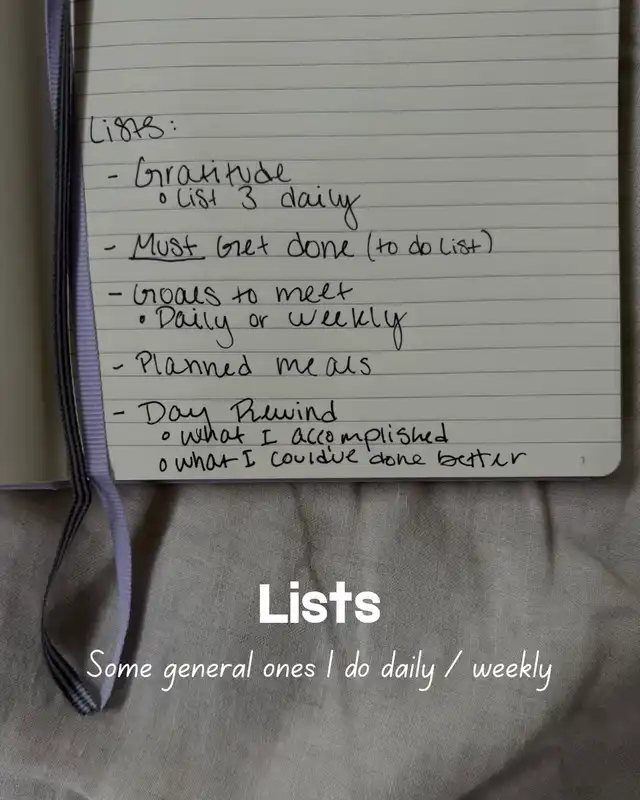 Lists:
- Gratitude
o List 3 daily
- Must Get done (to do list)
- Goals to meet
• Daily or weekly
- Planned meals
- Day Rewind
o what I accomplished
o what I could've done better
1
Lists
Some general ones I do daily / weekly